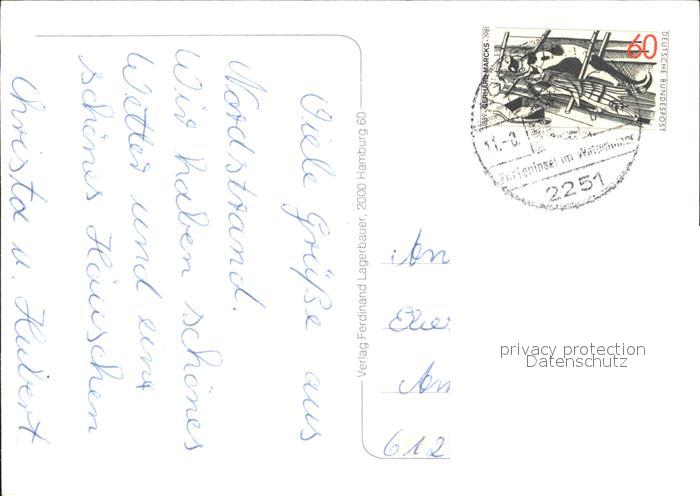 Viele Grüße aus
Nordstrand.
Wir haben schönes
Wetter und ein
schönes Häuschen
Christa u. Hubert.
Verlag Ferdinand Lagerbauer, 2000 Hamburg 60
DEUTSCHE BUNDESPOST
60
GERHARD MARCKS · 1981
11.-8.
Ferieninsel im Wattenmeer
2251
An
An
612
privacy protection
Datenschutz